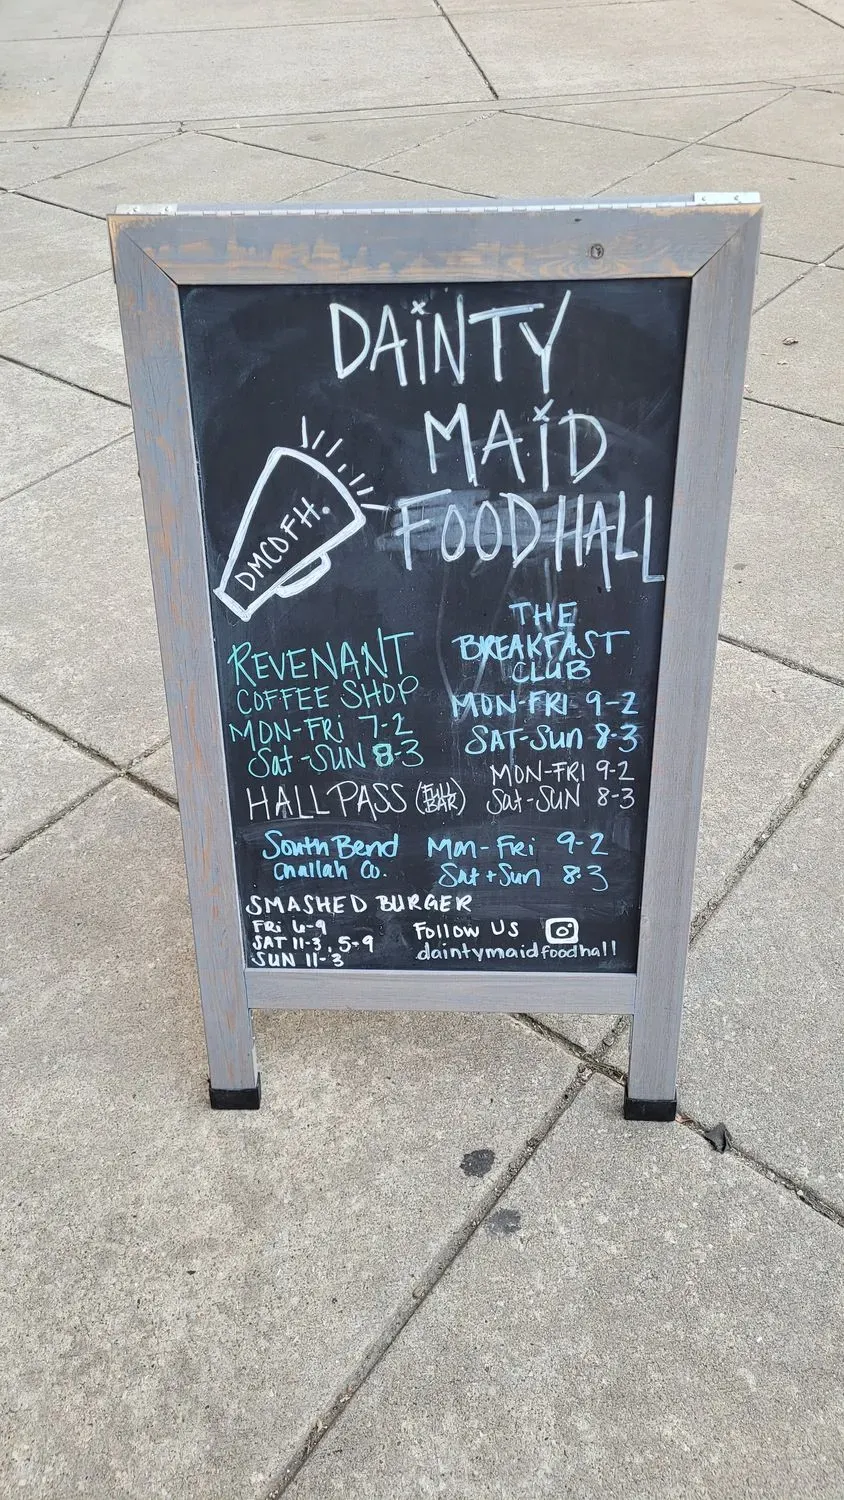 DAINTY
MAID
FOOD HALL
DMCOFH.
REVENANT
COFFEE SHOP
MON-FRI 7-2
Sat-SUN 8-3
THE
BREAKFAST
CLUB
MON-FRI 9-2
SAT-SUN 8-3
HALL PASS (FULL BAR)
MON-FRI 9-2
Sat-SUN 8-3
South Bend
Challah Co.
Mon-Fri 9-2
Sat+Sun 8-3
SMASHED BURGER
FRI 6-9
SAT 11-3, 5-9
SUN 11-3
Follow US
daintymaidfoodhall